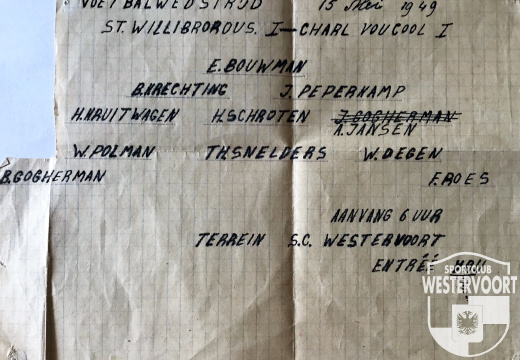 VOETBALWEDSTRIJD 15 Mei 1949
ST. WILLIBRORDUS. I—CHARL VOUCOOL I
E. BOUWMAN
B. KRECHTING J. PEPERKAMP
H. KRUITWAGEN H. SCHROTEN J. GOGHERMAN
A. JANSEN
W. POLMAN TH. SNELDERS W. DEGEN
B. GOGHERMAN F. ROES
AANVANG 6 UUR
TERREIN S.C. WESTERVOORT
ENTRÉÉ
SPORTCLUB
WESTERVOORT